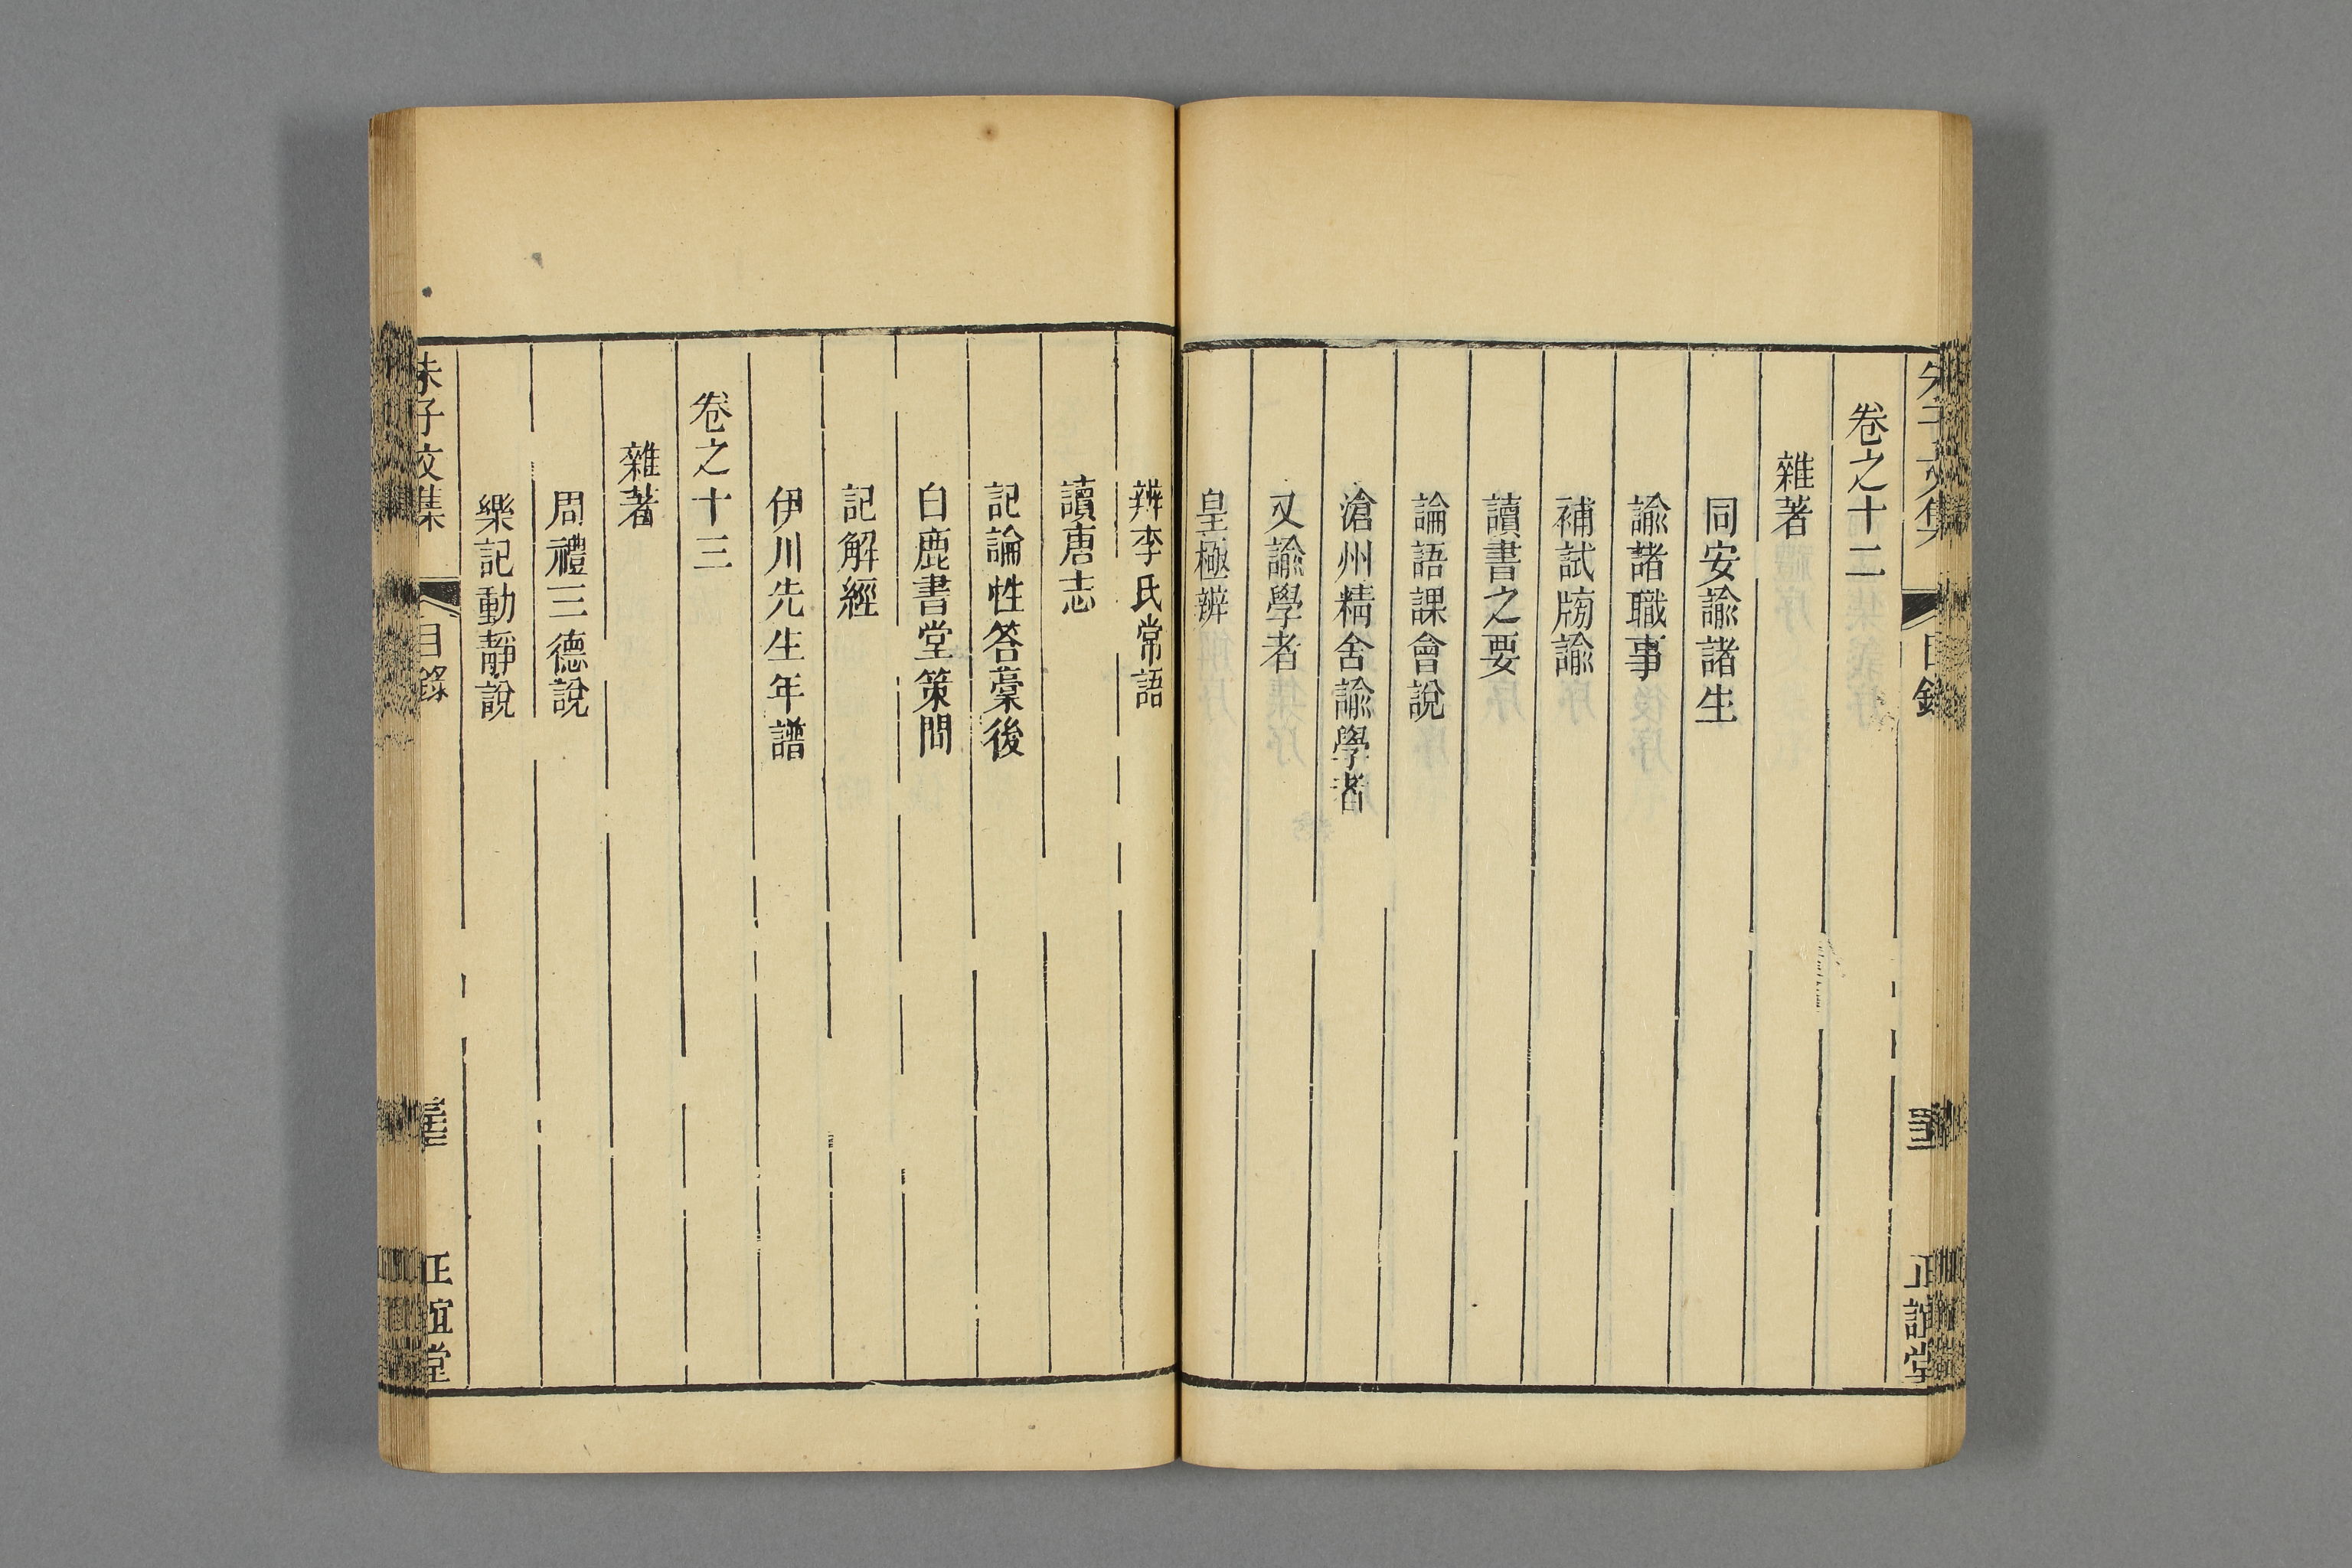 朱子文集
目錄
正誼堂
卷之十二
雜著
同安諭諸生
諭諸職事
補試牓諭
讀書之要
論語課會說
滄州精舍諭學者
又諭學者
皇極辨
辨李氏常語
讀唐志
記論性答藁後
白鹿書堂策問
記解經
伊川先生年譜
卷之十三
雜著
周禮三德說
樂記動靜說
朱子文集
目錄
正誼堂